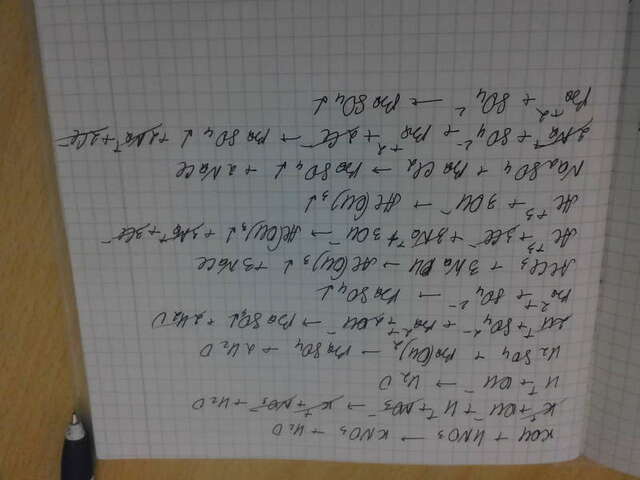 KOH + HNO₃ → KNO₃ + H₂O
K⁺ + OH⁻ + H⁺ + NO₃⁻ → K⁺ + NO₃⁻ + H₂O
H⁺ + OH⁻ → H₂O
H₂SO₄ + Ba(OH)₂ → BaSO₄ + 2H₂O
2H⁺ + SO₄²⁻ + Ba²⁺ + 2OH⁻ → BaSO₄↓ + 2H₂O
Ba²⁺ + SO₄²⁻ → BaSO₄↓
AlCl₃ + 3NaOH → Al(OH)₃↓ + 3NaCl
Al⁺³ + 3Cl⁻ + 3Na⁺ + 3OH⁻ → Al(OH)₃↓ + 3Na⁺ + 3Cl⁻
Al⁺³ + 3OH⁻ → Al(OH)₃↓
Na₂SO₄ + BaCl₂ → BaSO₄↓ + 2NaCl
2Na⁺ + SO₄²⁻ + Ba⁺² + 2Cl⁻ → BaSO₄↓ + 2Na⁺ + 2Cl⁻
Ba⁺² + SO₄²⁻ → BaSO₄↓